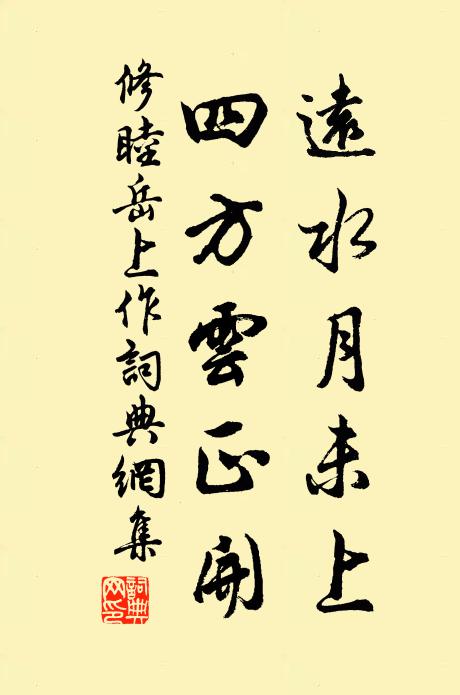 遠水月未上
四方雲正開
修睦岳上作詞典網集
詞典網印